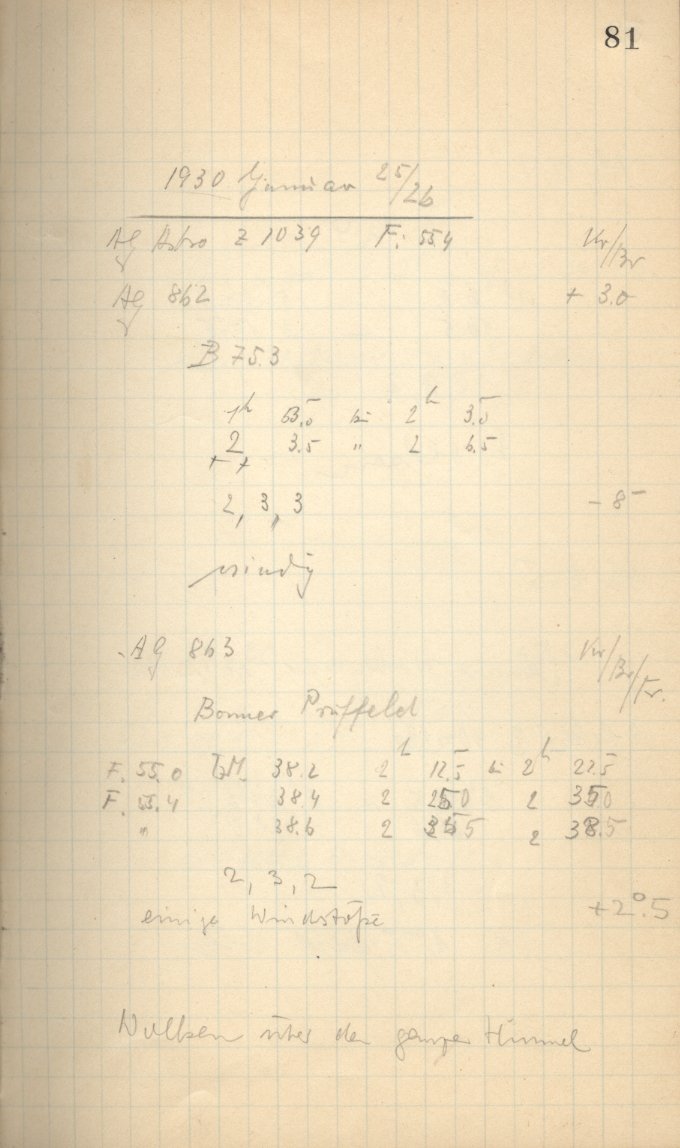 81
1930 Januar 25/26
AG Astro Z 1039 F: 55.4 Kr/Br
AG 862 + 3.0
B 75.3
1h 53.5 bis 2h 3.5
2 3.5 " 2 6.5
+ +
2, 3, 3 - 8
windig
AG 863 Kr/Br/Fr.
Bonner Prüffeld
F. 55.0 38.2 2h 12.5 bis 2h 22.5
F. 55.4 38.4 2 2
" 38.6 2 2 38.5
2, 3, 2
einige Windstöße +2°.5
Wolken über den ganzen Himmel